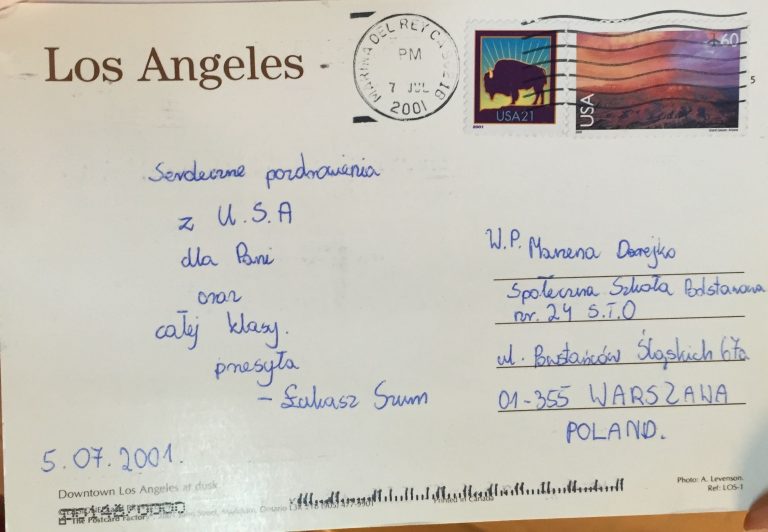 Los Angeles
MARINA DEL REY CA
PM
7 JUL
2001
USA21
2001
60
USA
5
Serdeczne pozdrowienia
z U.S.A
dla Pani
oraz
całej klasy.
przesyła
- Łukasz Szum
5.07.2001.
W.P. Marzena Dorejko
Społeczna Szkoła Podstawowa
nr. 24 S.T.O
ul. Powstańców Śląskich 67a
01-355 WARSZAWA
POLAND.
Downtown Los Angeles at dusk
The Postcard Factory
Markham, Ontario L3R (905) 477-9901
Printed in Canada
Photo: A. Levenson.
Ref: LOS-1